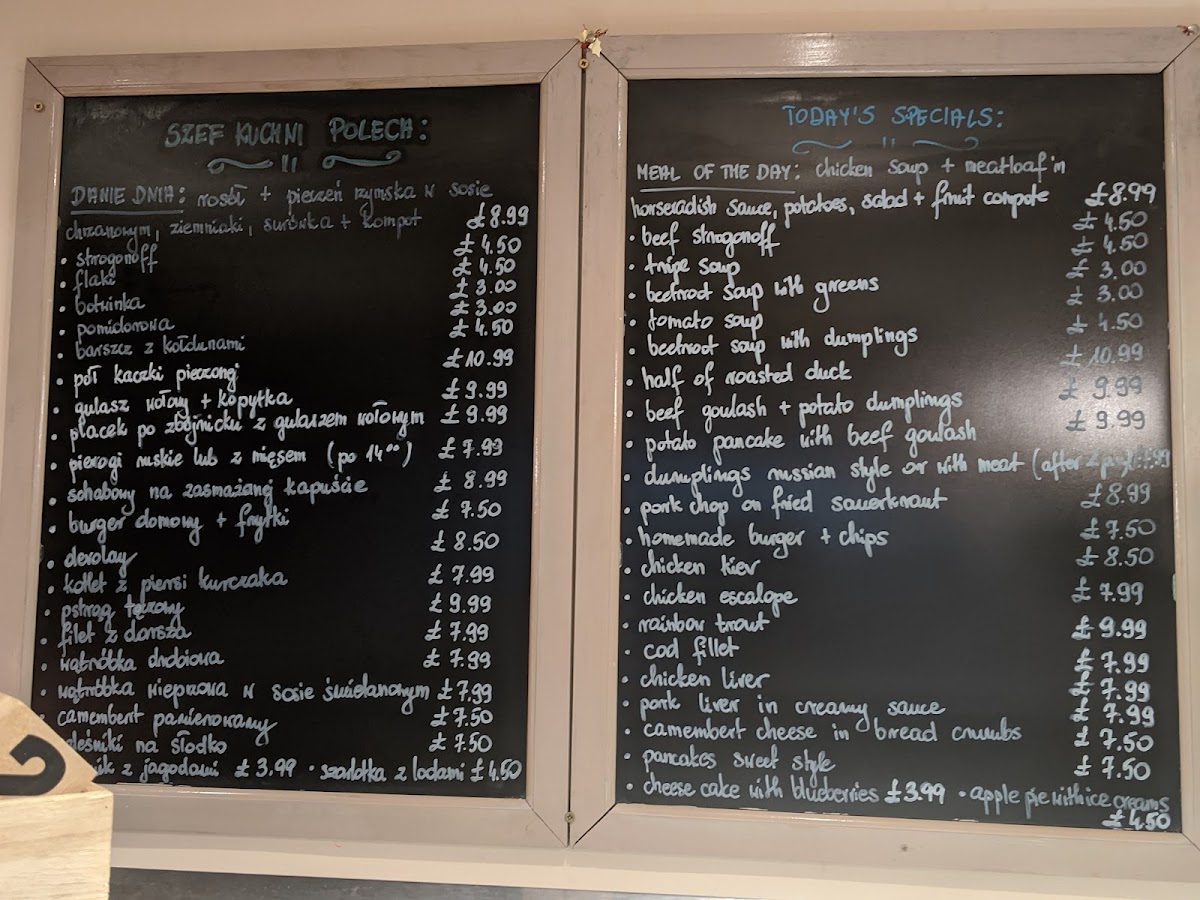 SZEF KUCHNI POLECA:
DANIE DNIA: rosół + pieczeń rzymska w sosie
chrzanowym, ziemniaki, surówka + kompot £8.99
• strogonoff £4.50
• flaki £4.50
• botwinka £3.00
• pomidorowa £3.00
• barszcz z kołdunami £4.50
• pół kaczki pieczonej £10.99
• gulasz wołowy + kopytka £9.99
• placek po zbójnicku z gulaszem wołowym £9.99
• pierogi ruskie lub z mięsem (po 14⁰⁰) £7.99
• schabowy na zasmażanej kapuście £8.99
• burger domowy + frytki £7.50
• devolay £8.50
• kotlet z piersi kurczaka £7.99
• pstrąg tęczowy £9.99
• filet z dorsza £7.99
• wątróbka drobiowa £7.99
• wątróbka wieprzowa w sosie śmietanowym £7.99
• camembert panierowany £7.50
naleśniki na słodko £7.50
z jagodami £3.99 • szarlotka z lodami £4.50
TODAY'S SPECIALS:
MEAL OF THE DAY: chicken soup + meatloaf in
horseradish sauce, potatoes, salad + fruit compote £8.99
• beef strogonoff £4.50
• tripe soup £4.50
• beetroot soup with greens £3.00
• tomato soup £3.00
• beetroot soup with dumplings £4.50
• half of roasted duck £10.99
• beef goulash + potato dumplings £9.99
• potato pancake with beef goulash £9.99
• dumplings russian style or with meat (after 2 pm)
• pork chop on fried sauerkraut £8.99
• homemade burger + chips £7.50
• chicken kiev £8.50
• chicken escalope £7.99
• rainbow trout £9.99
• cod fillet £7.99
• chicken liver £7.99
• pork liver in creamy sauce £7.99
• camembert cheese in bread crumbs £7.50
• pancakes sweet style £7.50
• cheese cake with blueberries £3.99 • apple pie with ice creams
£4.50